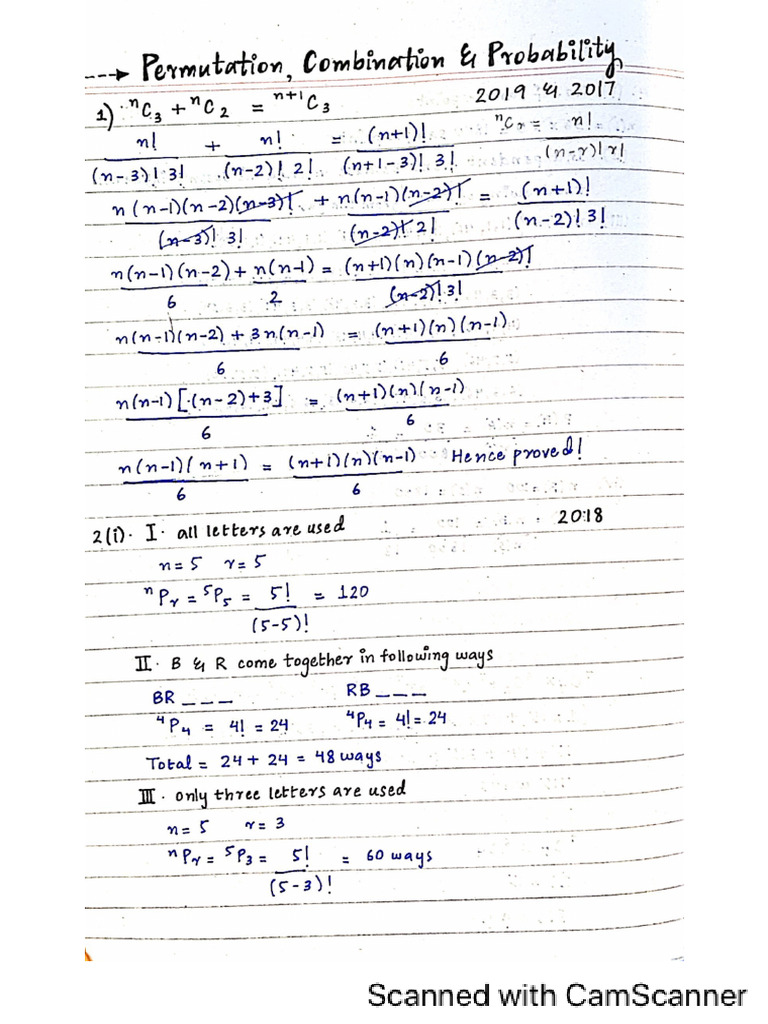 ---→ Permutation, Combination & Probability
1) ⁿC₃ + ⁿC₂ = ⁿ⁺¹C₃ 2019 & 2017
n! / (n-3)! 3! + n! / (n-2)! 2! = (n+1)! / (n+1-3)! 3! ⁿCᵣ = n! / (n-r)! r!
n(n-1)(n-2)(n-3)! / (n-3)! 3! + n(n-1)(n-2)! / (n-2)! 2! = (n+1)! / (n-2)! 3!
n(n-1)(n-2) / 6 + n(n-1) / 2 = (n+1)(n)(n-1)(n-2)! / (n-2)! 3!
n(n-1)(n-2) + 3n(n-1) / 6 = (n+1)(n)(n-1) / 6
n(n-1)[(n-2)+3] / 6 = (n+1)(n)(n-1) / 6
n(n-1)(n+1) / 6 = (n+1)(n)(n-1) / 6 Hence proved!
2(i). I. all letters are used 2018
n=5 r=5
ⁿPᵣ = ⁵P₅ = 5! / (5-5)! = 120
II. B & R come together in following ways
BR _ _ _ RB _ _ _
⁴P₄ = 4! = 24 ⁴P₄ = 4! = 24
Total = 24 + 24 = 48 ways
III. only three letters are used
n=5 r=3
ⁿPᵣ = ⁵P₃ = 5! / (5-3)! = 60 ways
Scanned with CamScanner